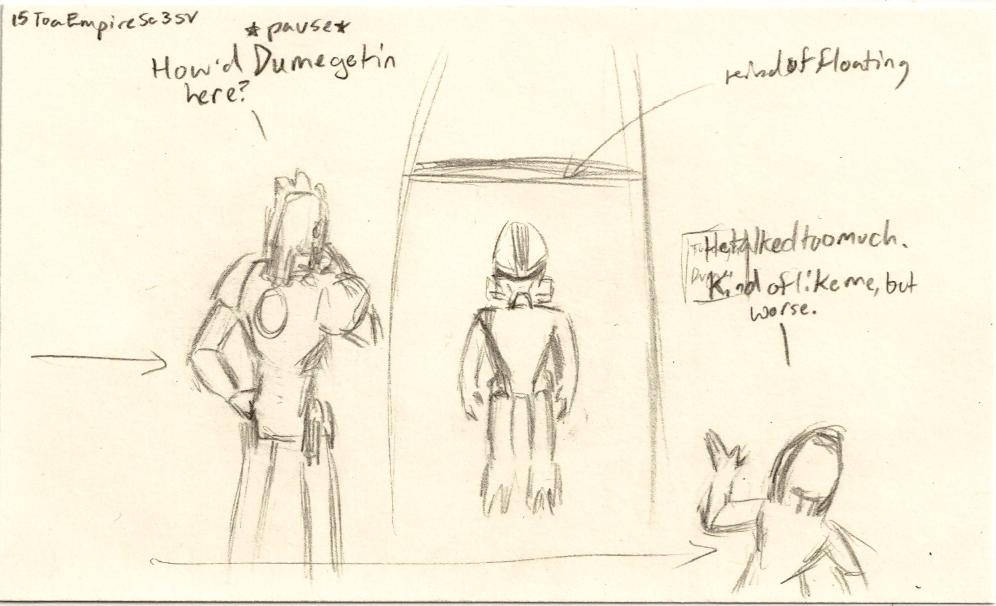 15ToaEmpireSc35V
*pause*
How'd Dumegetin
here?
kind of floating
He talked too much.
Kind of like me, but
worse.